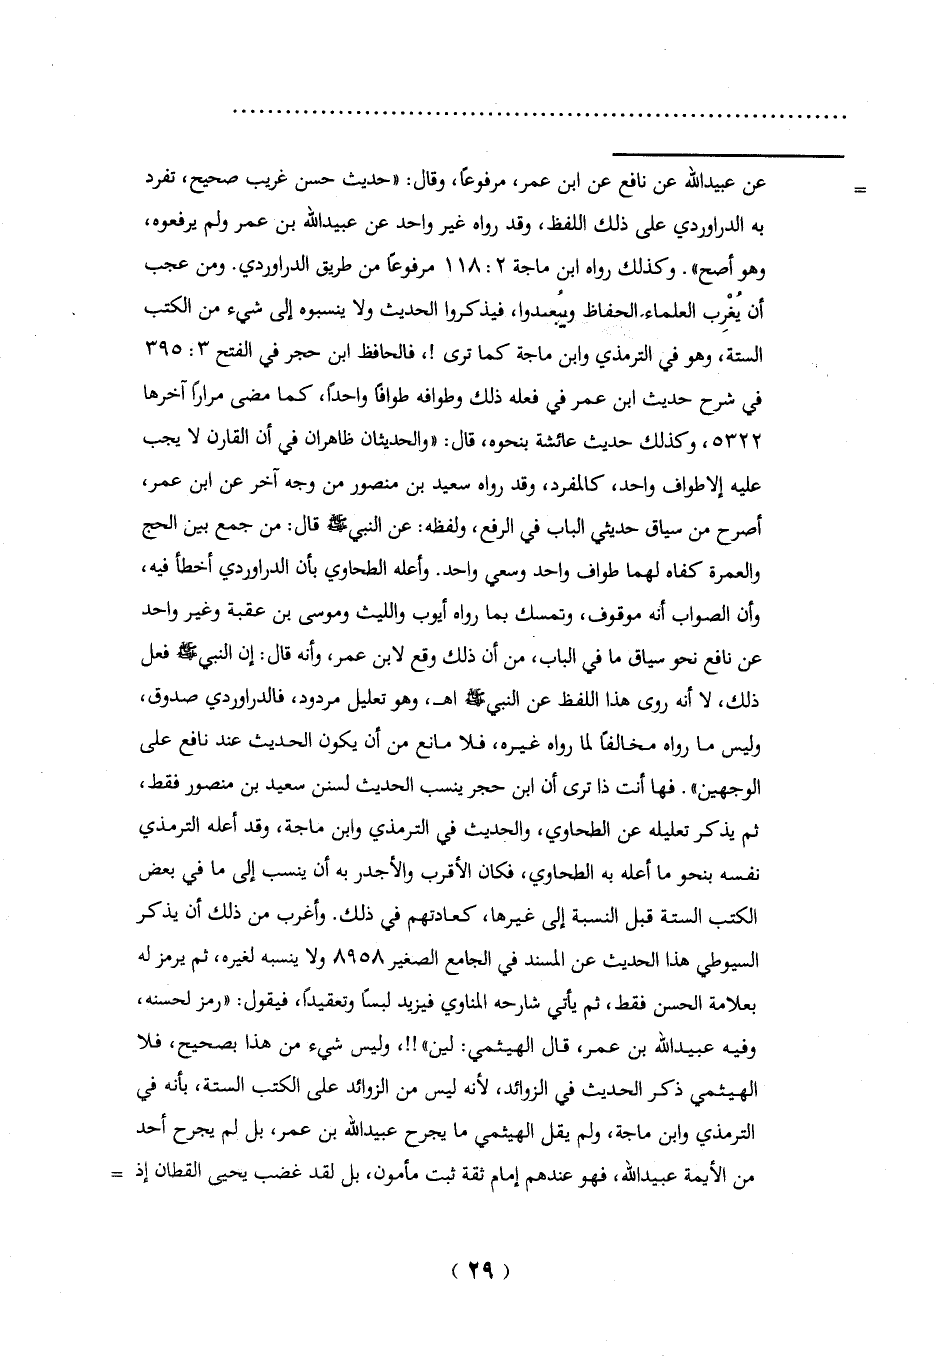 = عن عبيدالله عن نافع عن ابن عمر، مرفوعاً، وقال: «حديث حسن غريب صحيح، تفرد
به الدراوردي على ذلك اللفظ، وقد رواه غير واحد عن عبيدالله بن عمر ولم يرفعوه،
وهو أصح». وكذلك رواه ابن ماجة ٢: ١١٨ مرفوعاً من طريق الدراوردي. ومن عجب
أن يُغْرِب العلماء الحفاظ ويُبعدوا، فيذكروا الحديث ولا ينسبوه إلى شيء من الكتب
الستة، وهو في الترمذي وابن ماجة كما ترى !، فالحافظ ابن حجر في الفتح ٣: ٣٩٥
في شرح حديث ابن عمر في فعله ذلك وطوافه طوافاً واحداً، كما مضى مراراً آخرها
٥٣٢٢، وكذلك حديث عائشة بنحوه، قال: «والحديثان ظاهران في أن القارن لا يجب
عليه إلاطواف واحد، كالمفرد، وقد رواه سعيد بن منصور من وجه آخر عن ابن عمر،
أصرح من سياق حديثي الباب في الرفع، ولفظه: عن النبي ﷺ قال: من جمع بين الحج
والعمرة كفاه لهما طواف واحد وسعي واحد. وأعله الطحاوي بأن الدراوردي أخطأ فيه،
وأن الصواب أنه موقوف، وتمسك بما رواه أيوب والليث وموسى بن عقبة وغير واحد
عن نافع نحو سياق ما في الباب، من أن ذلك وقع لابن عمر، وأنه قال: إن النبي ﷺ فعل
ذلك، لا أنه روى هذا اللفظ عن النبي ﷺ اهـ، وهو تعليل مردود، فالدراوردي صدوق،
وليس ما رواه مخالفاً لما رواه غيره، فلا مانع من أن يكون الحديث عند نافع على
الوجهين». فها أنت ذا ترى أن ابن حجر ينسب الحديث لسنن سعيد بن منصور فقط،
ثم يذكر تعليله عن الطحاوي، والحديث في الترمذي وابن ماجة، وقد أعله الترمذي
نفسه بنحو ما أعله به الطحاوي، فكان الأقرب والأجدر به أن ينسب إلى ما في بعض
الكتب الستة قبل النسبة إلى غيرها، كعادتهم في ذلك. وأغرب من ذلك أن يذكر
السيوطي هذا الحديث عن المسند في الجامع الصغير ٨٩٥٨ ولا ينسبه لغيره، ثم يرمز له
بعلامة الحسن فقط، ثم يأتي شارحه المناوي فيزيد لبساً وتعقيداً، فيقول: «رمز لحسنه،
وفيه عبيدالله بن عمر، قال الهيثمي: لين»!!، وليس شيء من هذا بصحيح، فلا
الهيثمي ذكر الحديث في الزوائد، لأنه ليس من الزوائد على الكتب الستة، بأنه في
الترمذي وابن ماجة، ولم يقل الهيثمي ما يجرح عبيدالله بن عمر، بل لم يجرح أحد
من الأيمة عبيدالله، فهو عندهم إمام ثقة ثبت مأمون، بل لقد غضب يحيى القطان إذ =
( ٢٩ )